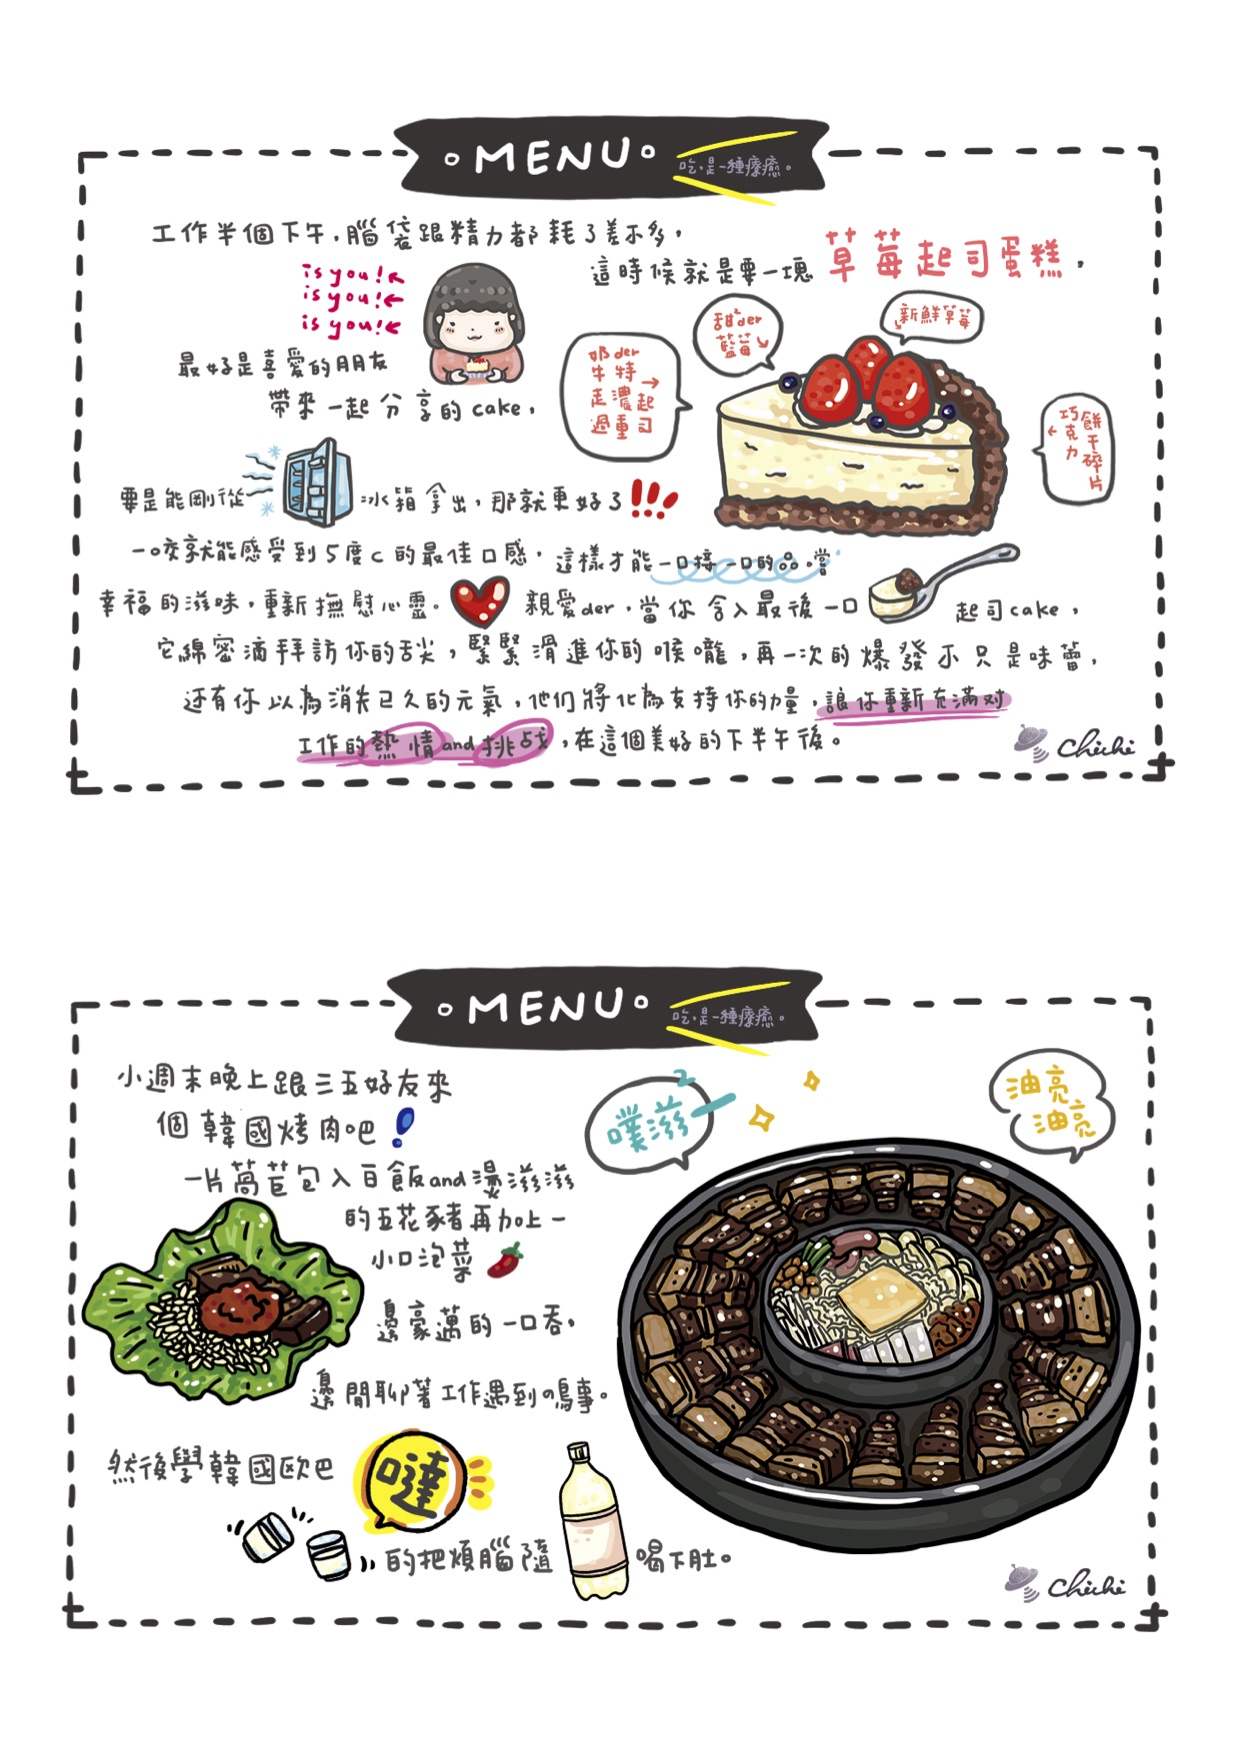 MENU
吃,是一種療癒。
工作半個下午,腦袋跟精力都耗了差不多,
這時候就是要一塊草莓起司蛋糕,
is you!
is you!
is you!
最好是喜愛的朋友
帶來一起分享的cake,
奶der
牛特
走濃起
過重司
甜der
藍莓
新鮮草莓
巧克力
餅干碎片
要是能剛從冰箱拿出,那就更好了!!!
一咬就能感受到5度c的最佳口感,這樣才能一口接一口的品嚐
幸福的滋味,重新撫慰心靈。親愛der,當你含入最後一口起司cake,
它綿密滴拜訪你的舌尖,緊緊滑進你的喉嚨,再一次的爆發不只是味蕾,
还有你以為消失已久的元氣,他们將化為支持你的力量,讓你重新充滿对
工作的熱情and挑战,在這個美好的下半午後。
Chichi
MENU
吃,是一種療癒。
小週末晚上跟三五好友來
個韓國烤肉吧!
一片萵苣包入白飯and燙滋滋
的五花豬再加上一
小口泡菜
邊豪邁的一口吞,
邊閒聊著工作遇到的鳥事。
然後學韓國歐巴
噠
的把煩腦隨喝下肚。
噗滋
油亮
油亮
Chichi